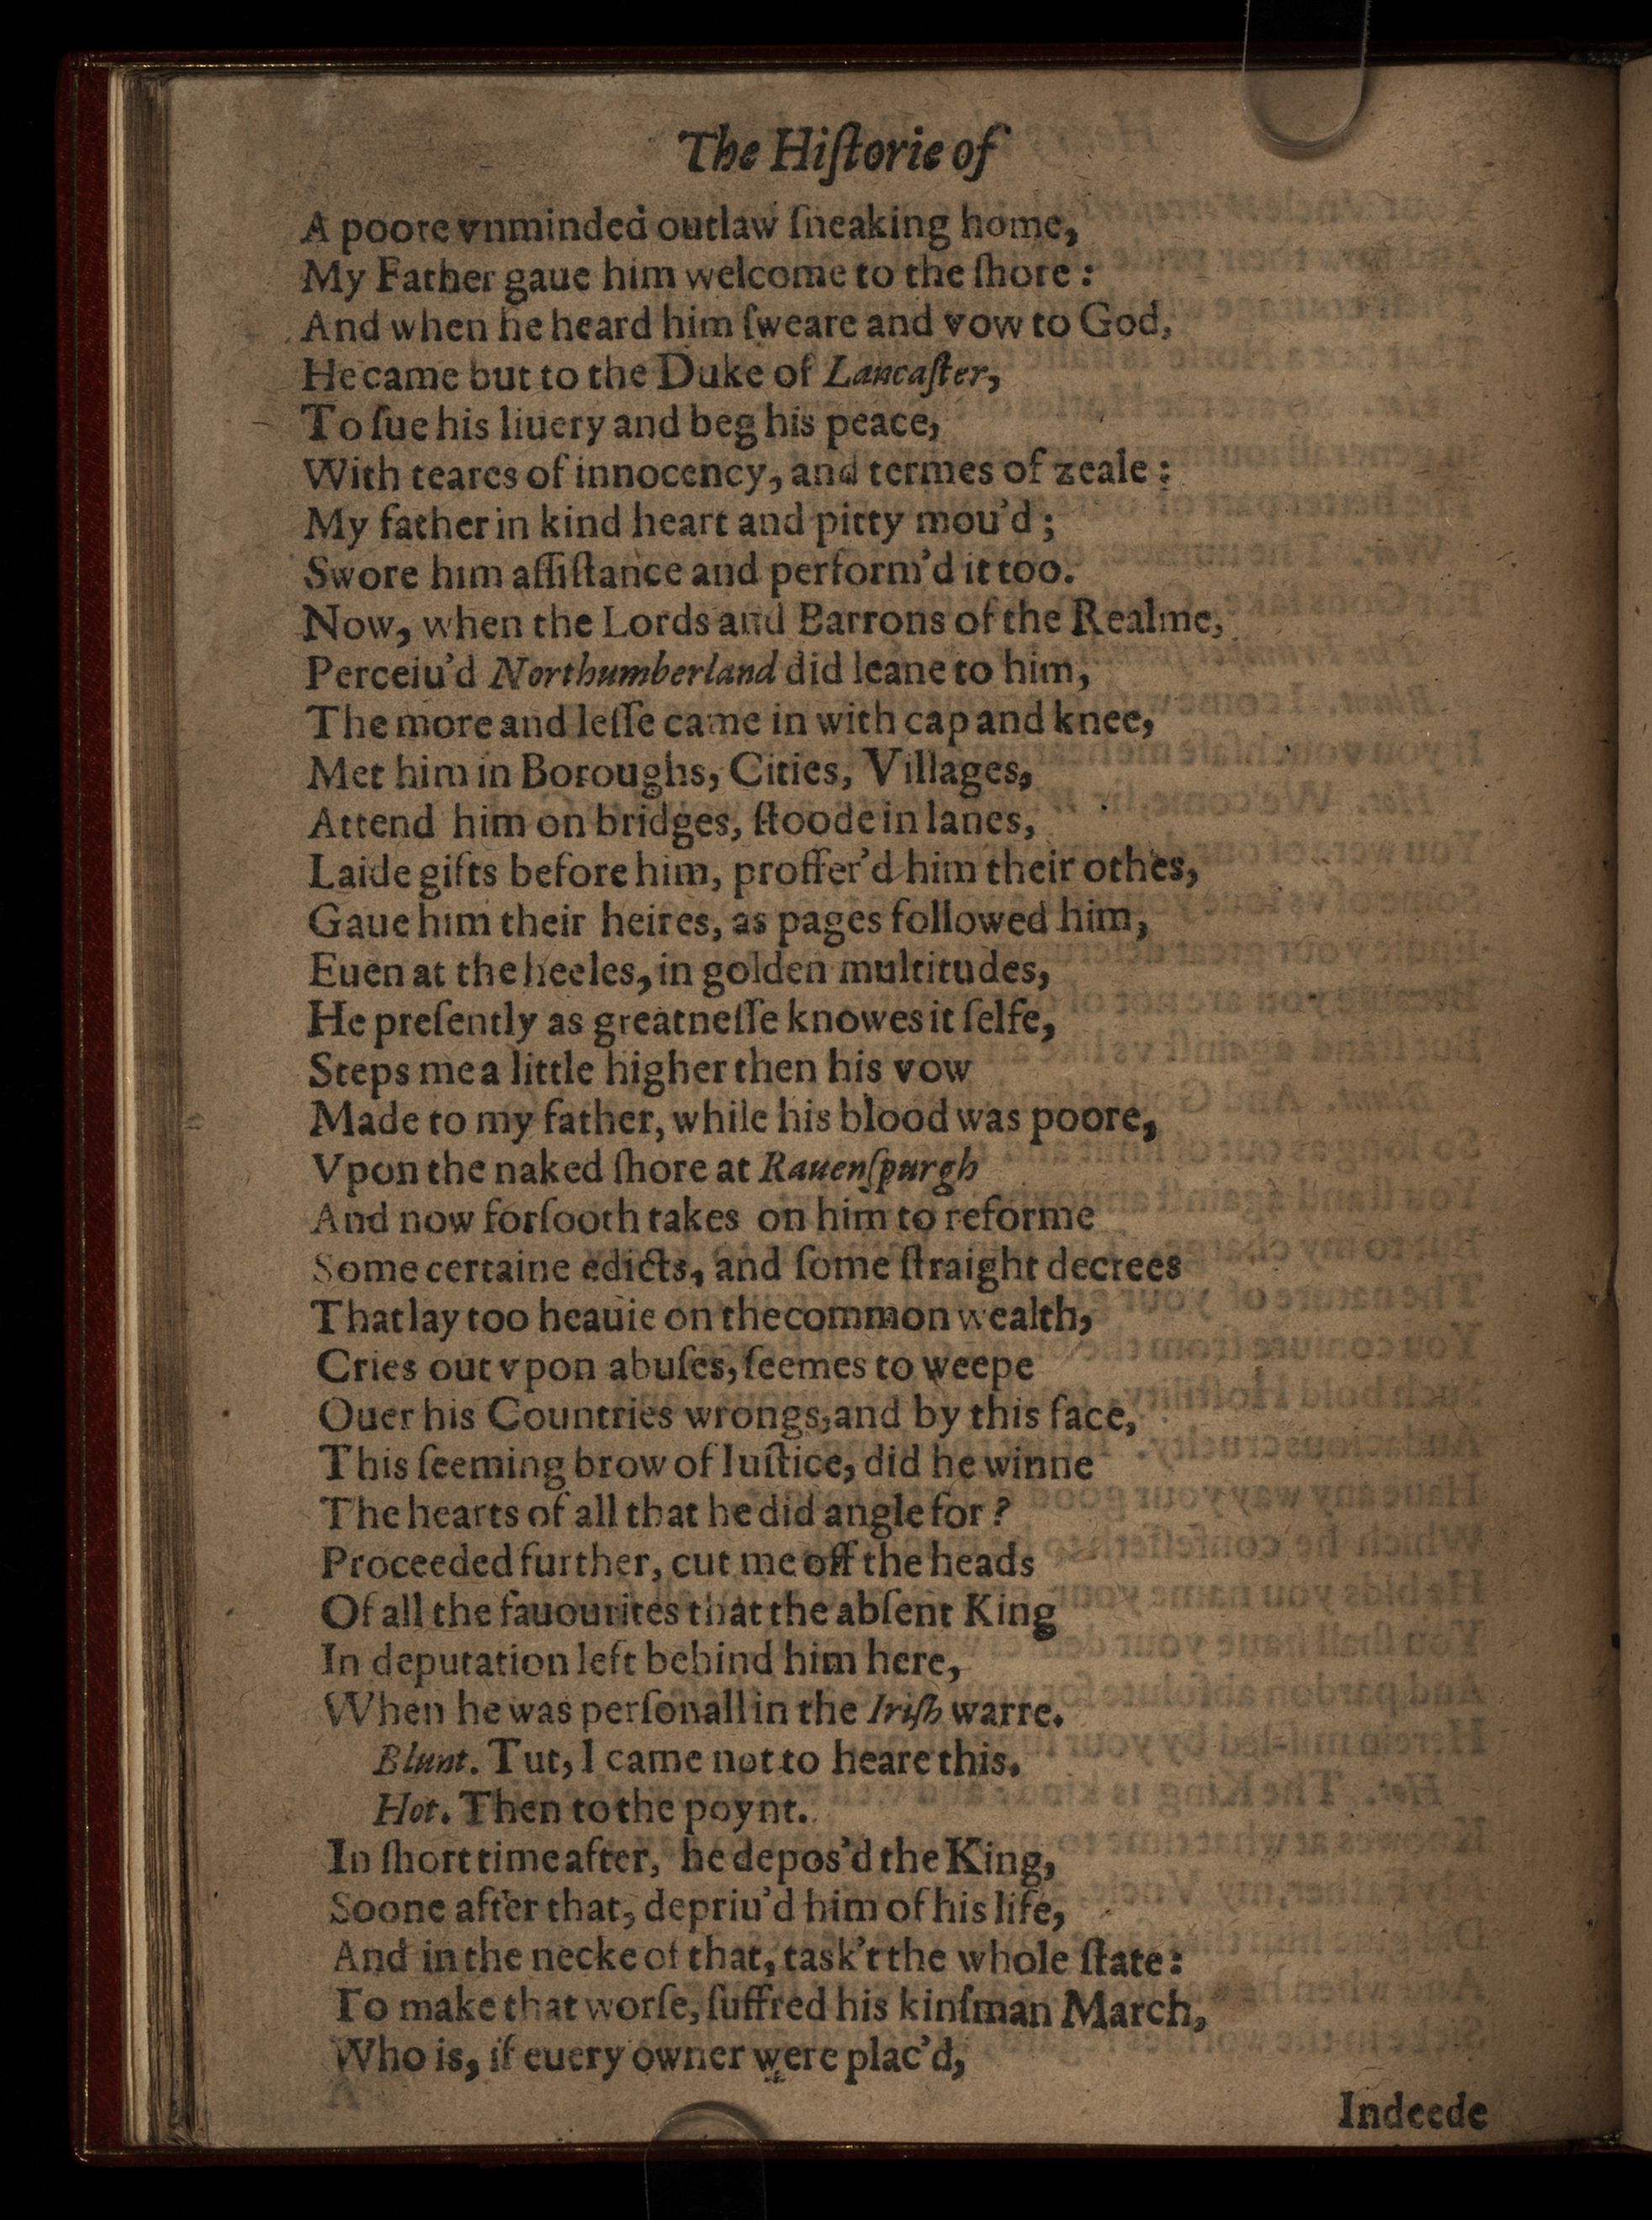 The Hiſtorie of
A poore vnminded outlaw ſneaking home,
My Father gaue him welcome to the ſhore :
And when he heard him ſweare and vow to God,
He came but to the Duke of Lancaſter,
To ſue his liuery and beg his peace,
With teares of innocency, and termes of zeale :
My father in kind heart and pitty mou'd ;
Swore him aſſiſtance and perform'd it too.
Now, when the Lords and Barrons of the Realme,
Perceiu'd Northumberland did leane to him,
The more and leſſe came in with cap and knee,
Met him in Boroughs, Cities, Villages,
Attend him on bridges, ſtoode in lanes,
Laide gifts before him, proffer'd him their othes,
Gaue him their heires, as pages followed him,
Euen at the heeles, in golden multitudes,
He preſently as greatneſſe knowes it ſelfe,
Steps me a little higher then his vow
Made to my father, while his blood was poore,
Vpon the naked ſhore at Rauenſpurgh
And now forſooth takes on him to reforme
Some certaine edicts, and ſome ſtraight decrees
That lay too heauie on the common wealth,
Cries out vpon abuſes, ſeemes to weepe
Ouer his Countries wrongs, and by this face,
This ſeeming brow of Iuſtice, did he winne
The hearts of all that he did angle for ?
Proceeded further, cut me off the heads
Of all the fauourites that the abſent King
In deputation left behind him here,
When he was perſonall in the Iriſh warre.
Blunt. Tut, I came not to heare this.
Hot. Then to the poynt.
In ſhort time after, he depos'd the King,
Soone after that, depriu'd him of his life,
And in the necke of that, task't the whole ſtate :
To make that worſe, ſuffred his kinſman March,
Who is, if euery owner were plac'd,
Indeede